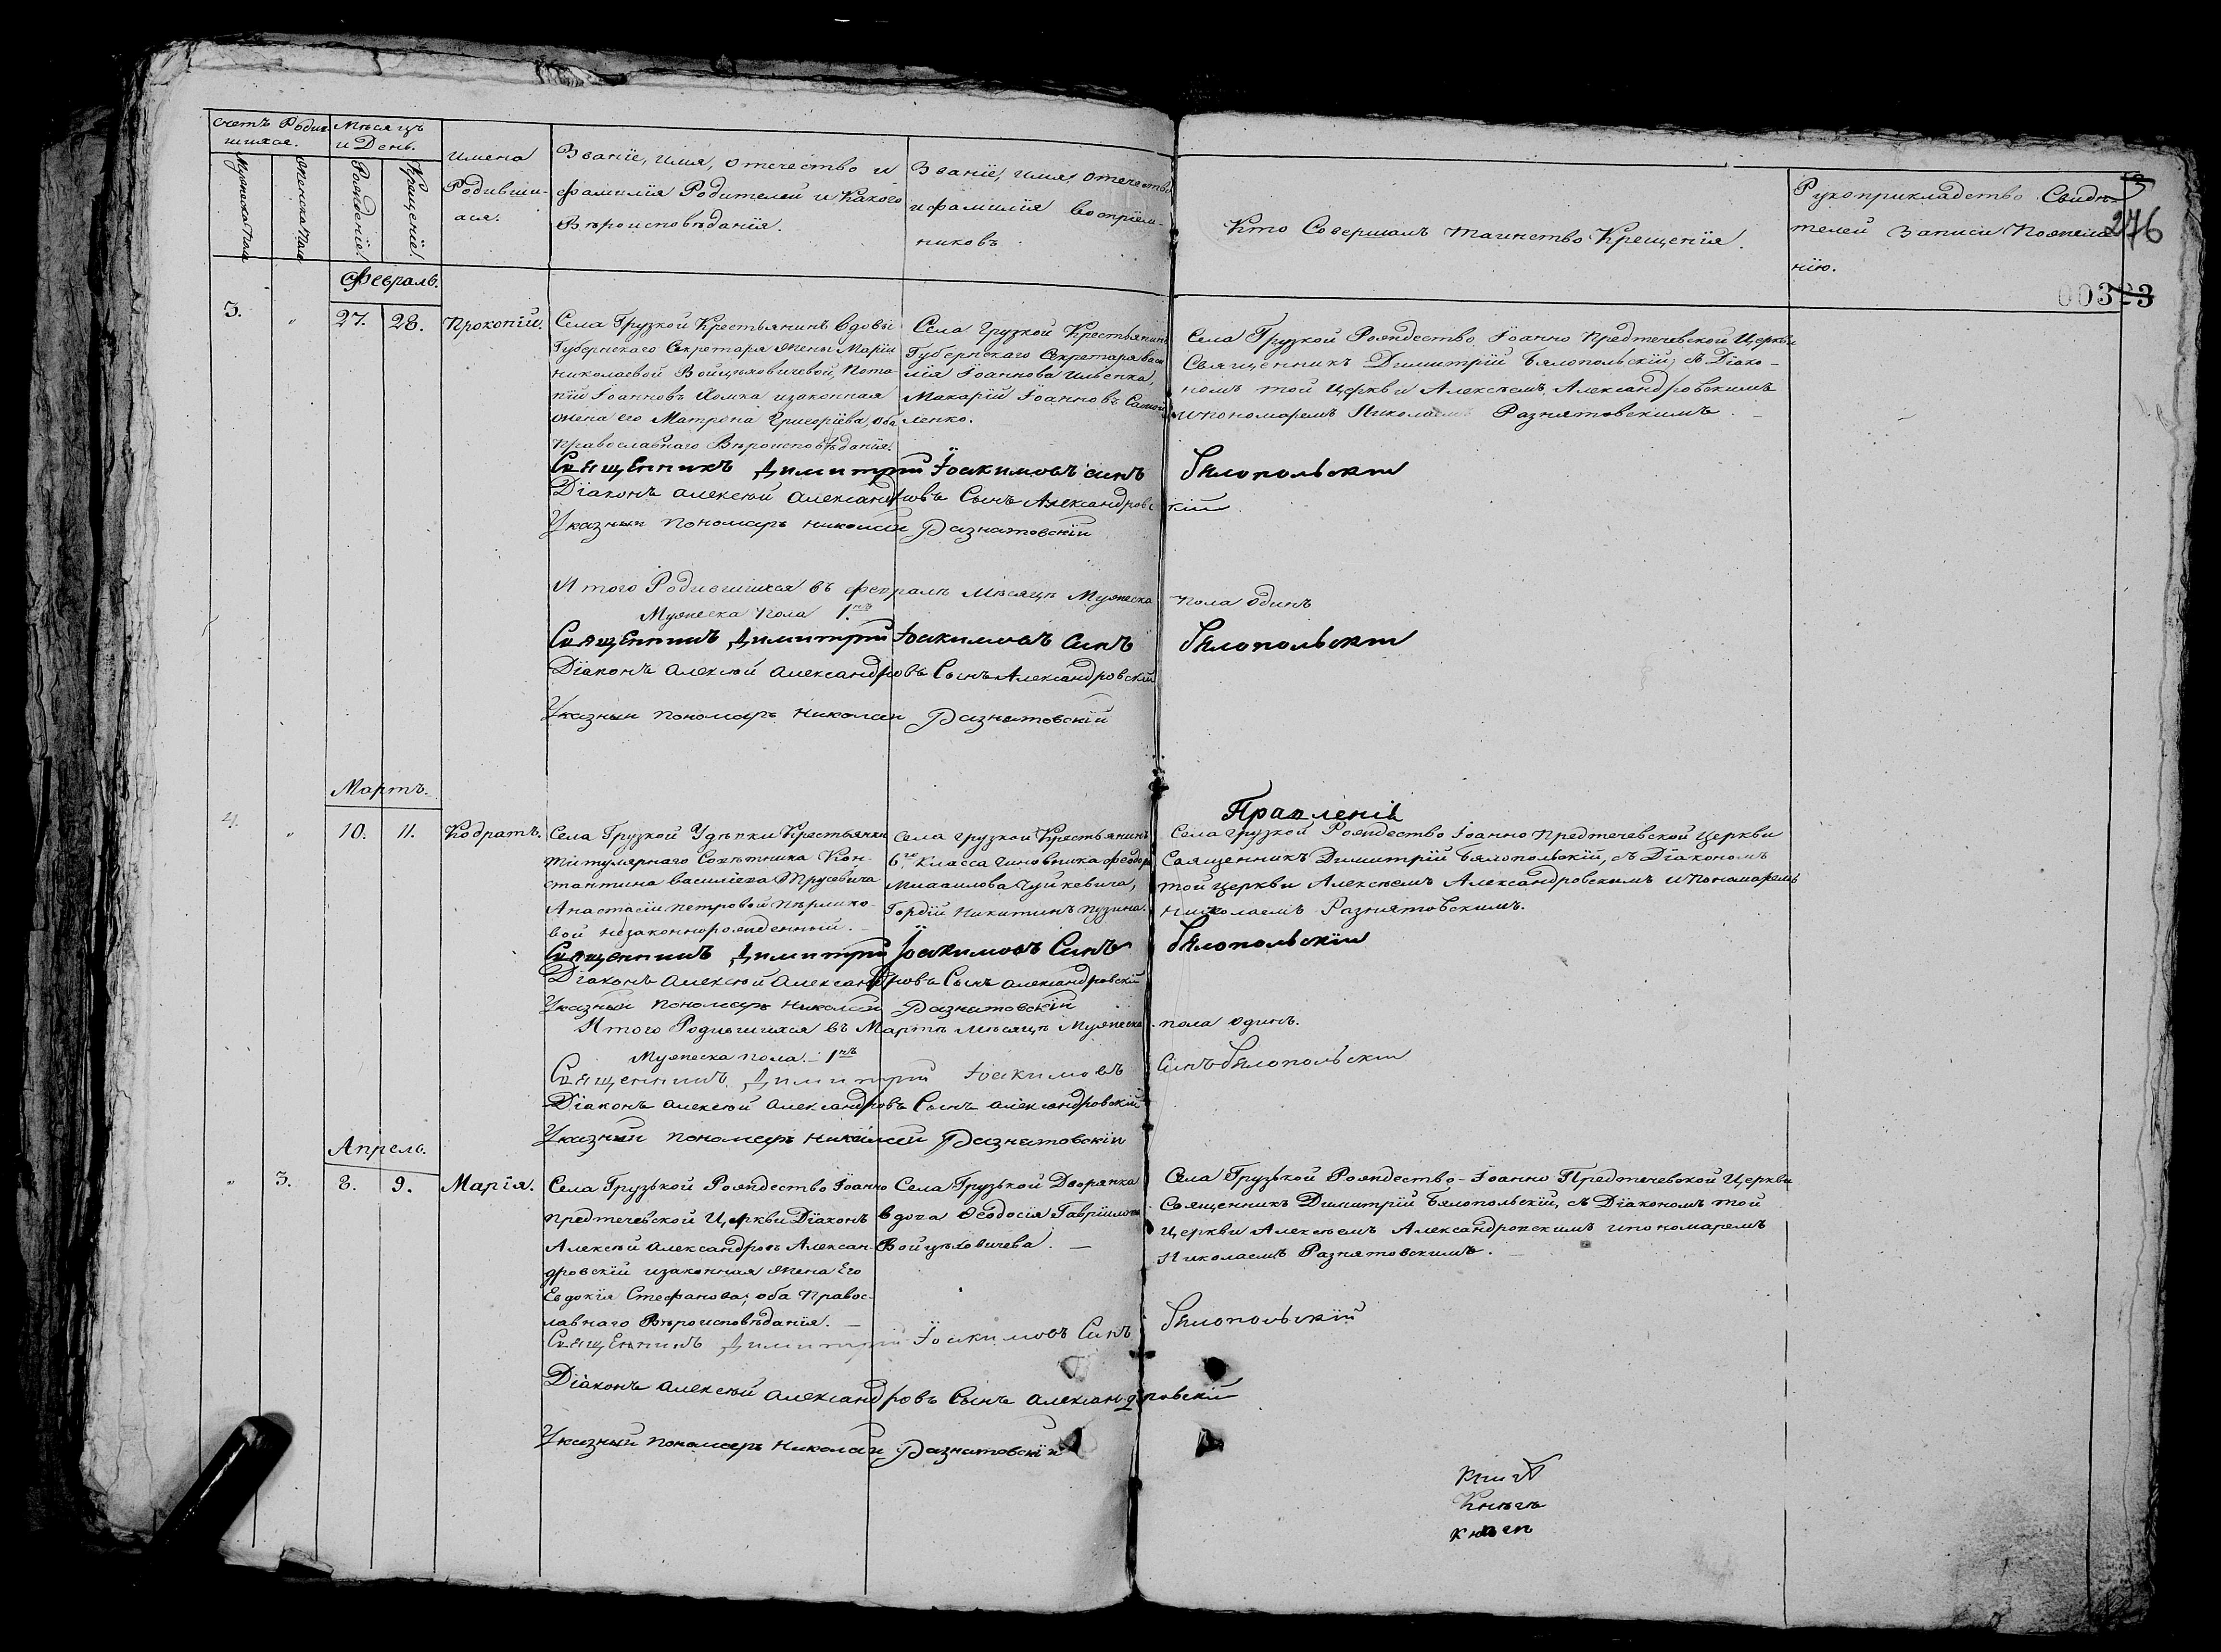 Счетъ Родив
шихся.
Мѣсяцъ
и День.
Мужеска Пола
Женска Пола
Рожденіе.
Крещеніе.
Имена
Родивши-
хся.
Званіе, имя, отечество и
фамилія Родителей и Какого
Вѣроисповѣданія.
Званіе, имя, отечество
и фамилія воспріем-
никовъ.
Кто Совершалъ таинство Крещенія.
Рукоприкладство Свидѣ-
телей Записи По
нію.
276
00323
Февраль.
3.
"
27.
28.
Прокопій.
Села Грузкой Крестьянинъ вдовы
Губернскаго Секретаря жены Маріи
Николаевой Войцѣховичевой, Пота-
пій Іоанновъ Хомка и законная
жена его Матрона Григоріева, оба
Православнаго Вѣроисповѣданія.
Села Грузкой Крестьянинъ
Губернскаго Секретаря Васи
лія Іоаннова Ильенка,
Макарій Іоанновъ Самой
ленко.
Села Грузкой Рождество Іоанно Предтечевской Церкви
Священникъ Димитрій Бѣлопольскій, съ Діако-
номъ той Церкви Алексѣемъ Александровскимъ
и пономаремъ Николаемъ Разнятовскимъ.
Священникъ Димитрій Іоакимовъ синъ Бѣлопольскій
Діаконъ Алексѣй Александровъ Сынъ Александровскій
Указный пономарь Николай Разнатовскій
Итого Родившихся въ февралѣ Мѣсяцѣ Мужеска пола одинъ
Мужеска Пола 1.нъ
Священникъ Димитрій Іоакимовъ Синъ Бѣлопольскій
Діаконъ Алексѣй Александровъ Сынъ Александровскій
Указный пономарь Николай Разнатовскій
Мартъ.
4.
"
10.
11.
Кодратъ.
Села Грузкой Удѣвки Крестьянки
Титулярнаго Совѣтника Кон-
стантина Василіева Трусевича
Анастасіи Петровой
вой незаконнорожденный.
Села Грузкой Крестьянинъ
6го Класса Чиновника Феодора
Михаилова Чуйкевича,
Гордій Никитинъ Пузина.
Села Грузкой Рождество Іоанно Предтечевской Церкви
Священникъ Димитрій Бѣлопольскій, съ Діакономъ
той церкви Алексѣемъ Александровскимъ и Понамаремъ
Николаемъ Разнятовскимъ.
Священникъ Димитрій Іоакимовъ Синъ Бѣлопольскій
Діаконъ Алексѣй Александровъ Сынъ Александровскій
Указный пономарь Николай Разнатовскій
Итого Родившихся въ Мартѣ Мѣсяцѣ Мужеска пола одинъ.
Мужеска пола - 1нъ
Священникъ Димитрій Іоакимовъ Синъ Бѣлопольскій
Діаконъ Алексѣй Александровъ Сынъ Александровскій
Указный пономарь Николай Разнатовскій
Апрель.
"
3.
8.
9.
Марія.
Села Грузькой Рождество Іоанно
Предтечевской Церкви Діаконъ
Алексѣй Александровъ Алексан-
дровскій и законная жена Его
Евдокія Стефанова, оба Правос-
лавнаго Вѣроисповѣданія. —
Села Грузькой Дворянка
вдова Феодосія Гавріилова
Войцѣховичева. —
Села Грузькой Рождество-Іоанно Предтечевской Церкви
Священникъ Димитрій Бѣлопольскій, съ Діакономъ той
Церкви Алексѣемъ Александровскимъ и пономаремъ
Николаемъ Разнятовскимъ. —
Священникъ Димитрій Іоакимовъ Синъ Бѣлопольскій
Діаконъ Алексѣй Александровъ Сынъ Александровскій
Указный пономарь Николай Разнатовскій